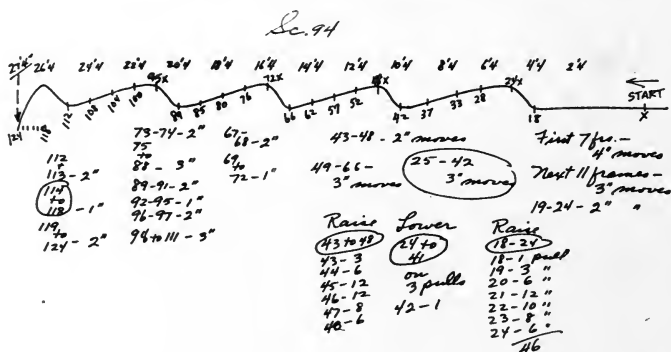 Sc. 94
27'4" 26'4 24'4 22'4 20'4 18'4 16'4 14'4 12'4 10'4 8'4 6'4 4'4 2'4
95x 72x 48x 24x
START
x
124 118 112 108 104 100 89 85 80 76 66 62 57 52 42 37 33 28 18
112
+
113 - 2"
114
to
118 - 1"
119
to
124 - 2"
73-74-2"
75
to
88 - 3"
89-91-2"
92-95-1"
96-97-2"
98 to 111 - 3"
67-
68-2"
69
to
72-1"
43-48-2" moves
49-66-
3" moves
25-42
3" moves
First 7 frs.-
4" moves
Next 11 frames-
3" moves
19-24-2" "
Raise
43 to 48
43-3
44-6
45-12
46-12
47-8
48-6
Lower
24 to
41
on
3 pulls
42-1
Raise
18-24
18-1 pull
19-3 "
20-6 "
21-12 "
22-10 "
23-8 "
24-6 "
46